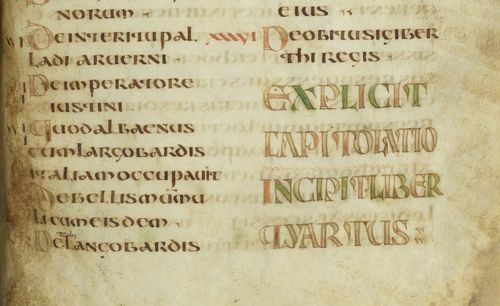 norum
De interitu pal
ladi arverni
De imperatore
iustini
Quod albaenus
cum langobardis
italiam occupavit
De bellis mūmu
li cum eisdem
De langobardis
eius
De obitu sigiber
thi regis
EXPLICIT
CAPITOLATIO
INCIPIT LIBER
QUARTUS